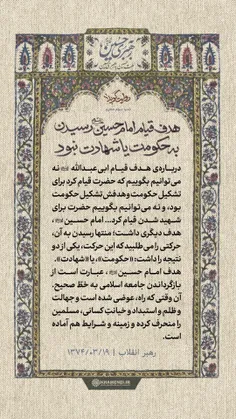 هدف قیام امام حسین رسیدن
به حکومت یا شهادت نبود
درباره‌ی هدف قیام ابی‌عبدالله نه
می‌توانیم بگوییم که حضرت قیام کرد برای
تشکیل حکومت و هدفش تشکیل حکومت
بود، و نه می‌توانیم بگوییم حضرت برای
شهید شدن قیام کرد... امام حسین ،
هدف دیگری داشت؛ منتها رسیدن به آن،
حرکتی را می‌طلبید که این حرکت، یکی از دو
نتیجه را داشت: «حکومت»، یا «شهادت».
هدف امام حسین ، عبارت است از
بازگرداندن جامعه اسلامی به خط صحیح.
آن وقتی که راه، عوضی شده است و جهالت
و ظلم و استبداد و خیانت کسانی، مسلمین
را منحرف کرده و زمینه و شرایط هم آماده
است.
رهبر انقلاب | ۱۳۷۴/۰۳/۱۹